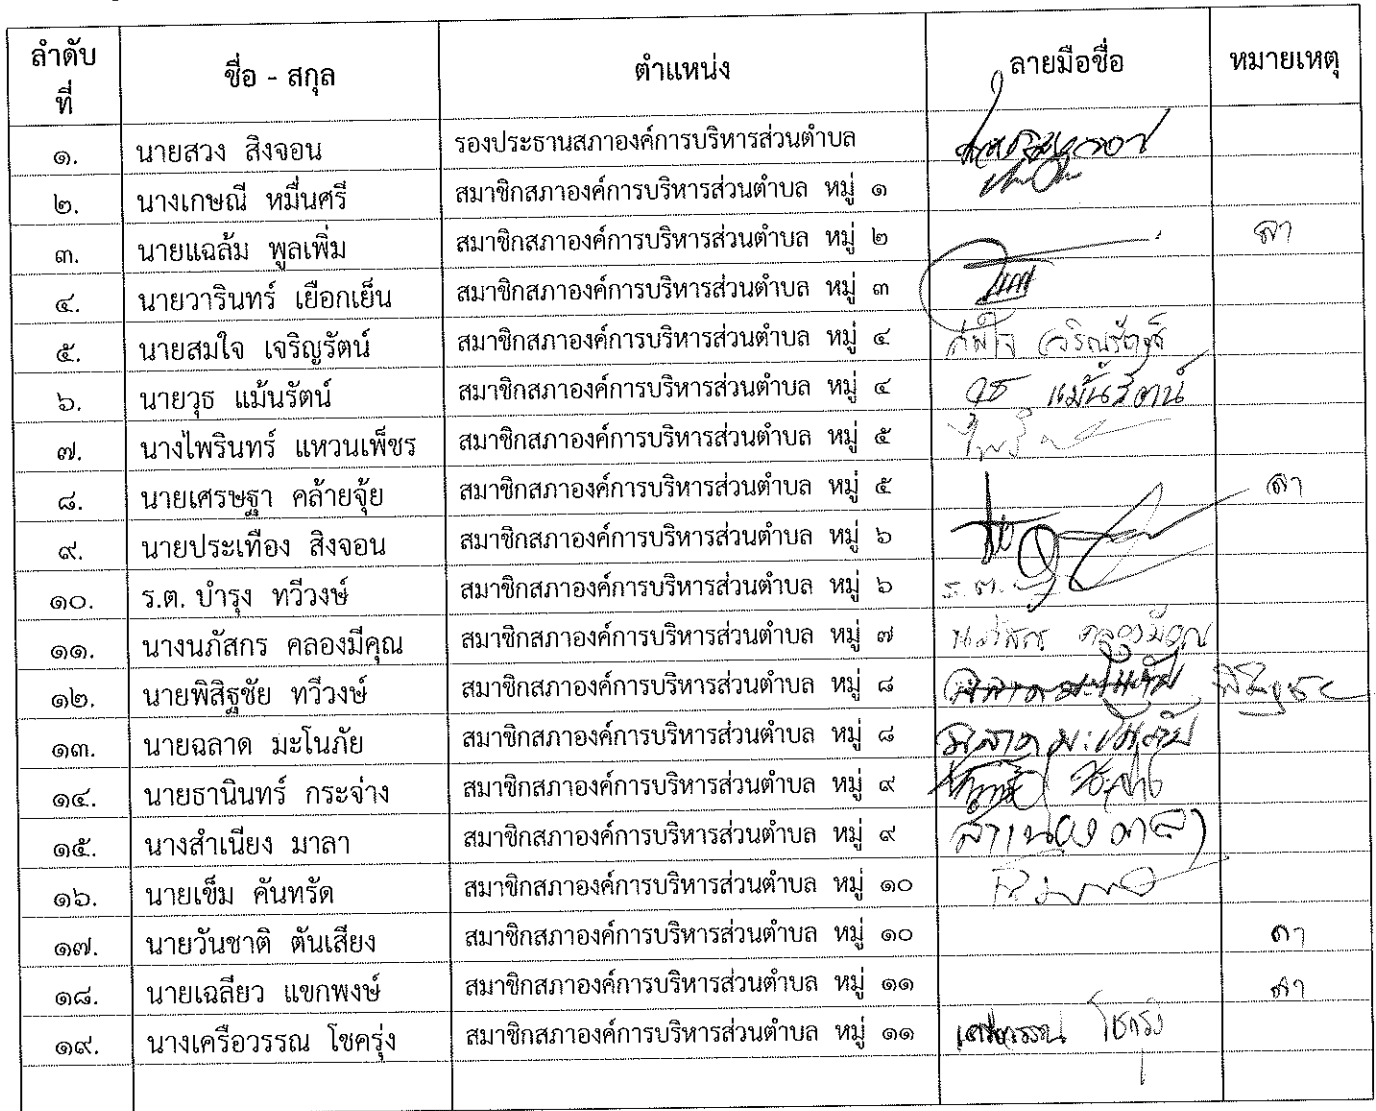 ลำดับ
ที่
ชื่อ - สกุล
ตำแหน่ง
ลายมือชื่อ
หมายเหตุ
๑. นายสวง สิงจอน รองประธานสภาองค์การบริหารส่วนตำบล
๒. นางเกษณี หมื่นศรี สมาชิกสภาองค์การบริหารส่วนตำบล หมู่ ๑
๓. นายแฉล้ม พูลเพิ่ม สมาชิกสภาองค์การบริหารส่วนตำบล หมู่ ๒ ลา
๔. นายวารินทร์ เยือกเย็น สมาชิกสภาองค์การบริหารส่วนตำบล หมู่ ๓
๕. นายสมใจ เจริญรัตน์ สมาชิกสภาองค์การบริหารส่วนตำบล หมู่ ๔ สมใจ เจริญรัตน์
๖. นายวุธ แม้นรัตน์ สมาชิกสภาองค์การบริหารส่วนตำบล หมู่ ๔ วุธ แม้นรัตน์
๗. นางไพรินทร์ แหวนเพ็ชร สมาชิกสภาองค์การบริหารส่วนตำบล หมู่ ๕
๘. นายเศรษฐา คล้ายจุ้ย สมาชิกสภาองค์การบริหารส่วนตำบล หมู่ ๕ ลา
๙. นายประเทือง สิงจอน สมาชิกสภาองค์การบริหารส่วนตำบล หมู่ ๖
๑๐. ร.ต. บำรุง ทวีวงษ์ สมาชิกสภาองค์การบริหารส่วนตำบล หมู่ ๖ ร.ต.
๑๑. นางนภัสกร คลองมีคุณ สมาชิกสภาองค์การบริหารส่วนตำบล หมู่ ๗ นภัสกร คลองมีคุณ
๑๒. นายพิสิฐชัย ทวีวงษ์ สมาชิกสภาองค์การบริหารส่วนตำบล หมู่ ๘
๑๓. นายฉลาด มะโนภัย สมาชิกสภาองค์การบริหารส่วนตำบล หมู่ ๘ ฉลาด มะโนภัย
๑๔. นายธานินทร์ กระจ่าง สมาชิกสภาองค์การบริหารส่วนตำบล หมู่ ๙
๑๕. นางสำเนียง มาลา สมาชิกสภาองค์การบริหารส่วนตำบล หมู่ ๙ สำเนียง มาลา
๑๖. นายเข็ม คันทรัด สมาชิกสภาองค์การบริหารส่วนตำบล หมู่ ๑๐
๑๗. นายวันชาติ ตันเสียง สมาชิกสภาองค์การบริหารส่วนตำบล หมู่ ๑๐ ลา
๑๘. นายเฉลียว แขกพงษ์ สมาชิกสภาองค์การบริหารส่วนตำบล หมู่ ๑๑ ลา
๑๙. นางเครือวรรณ โชครุ่ง สมาชิกสภาองค์การบริหารส่วนตำบล หมู่ ๑๑ เครือวรรณ โชครุ่ง